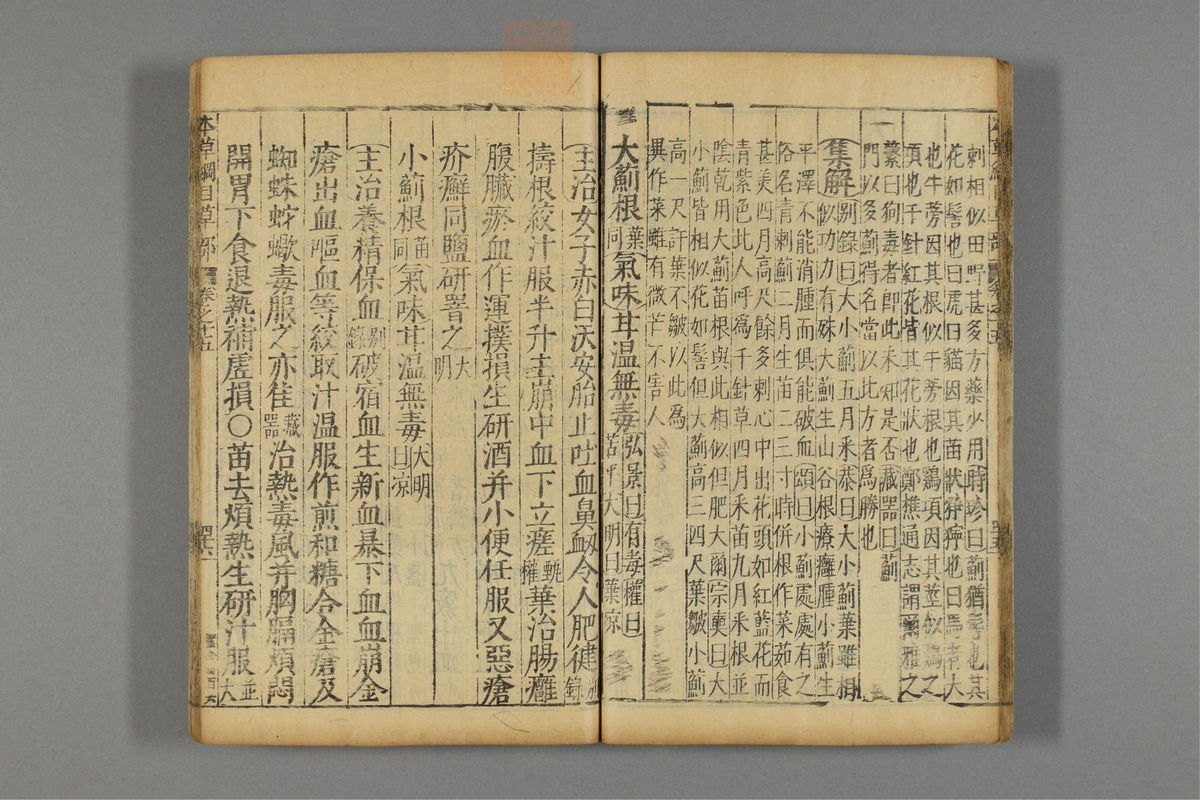 刺相似田野甚多方藥少用時珍曰薊猶髻也其
花如髻也曰虎曰貓因其苗狀猙獰也曰馬者大
也牛蒡因其根似牛蒡根也雞項因其莖似雞之
項也千針紅花皆其花狀也鄭樵通志謂爾雅之
蘩曰狗毒者即此未知是否藏器曰薊
門以多薊得名當以此方者爲勝也
集解 別錄曰大小薊五月采恭曰大小薊葉雖相
似功力有殊大薊生山谷根療癰腫小薊生
平澤不能消腫而俱能破血頌曰小薊處處有之
俗名青刺薊二月生苗二三寸時併根作菜茹食
甚美四月高尺餘多刺心中出花頭如紅藍花而
青紫色北人呼爲千針草四月采苗九月采根並
陰乾用大薊苗根與此相似但肥大爾宗奭曰大
小薊皆相似花如髻但大薊高三四尺葉皺小薊
高一尺許葉不皺以此爲
異作菜雖有微芒不害人
大薊根 葉同 氣味 甘溫無毒 弘景曰有毒權曰苦平大明曰葉涼
主治 女子赤白沃安胎止吐血鼻衄令人肥健 別錄
擣根絞汁服半升主崩中血下立瘥 甄權 葉治腸癰
腹臟瘀血作運撲損生研酒并小便任服又惡瘡
疥癬同鹽研罯之 大明
小薊根 苗同 氣味 甘溫無毒 大明曰涼
主治 養精保血 別錄 破宿血生新血暴下血血崩金
瘡出血嘔血等絞取汁溫服作煎和糖合金瘡及
蜘蛛蛇蠍毒服之亦佳 藏器 治熱毒風并胸膈煩悶
開胃下食退熱補虛損〇苗去煩熱生研汁服 並大
本草綱目草部 卷之十五